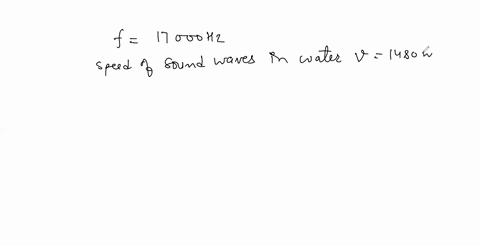 f = 17000Hz
speed of sound waves in water v = 1480